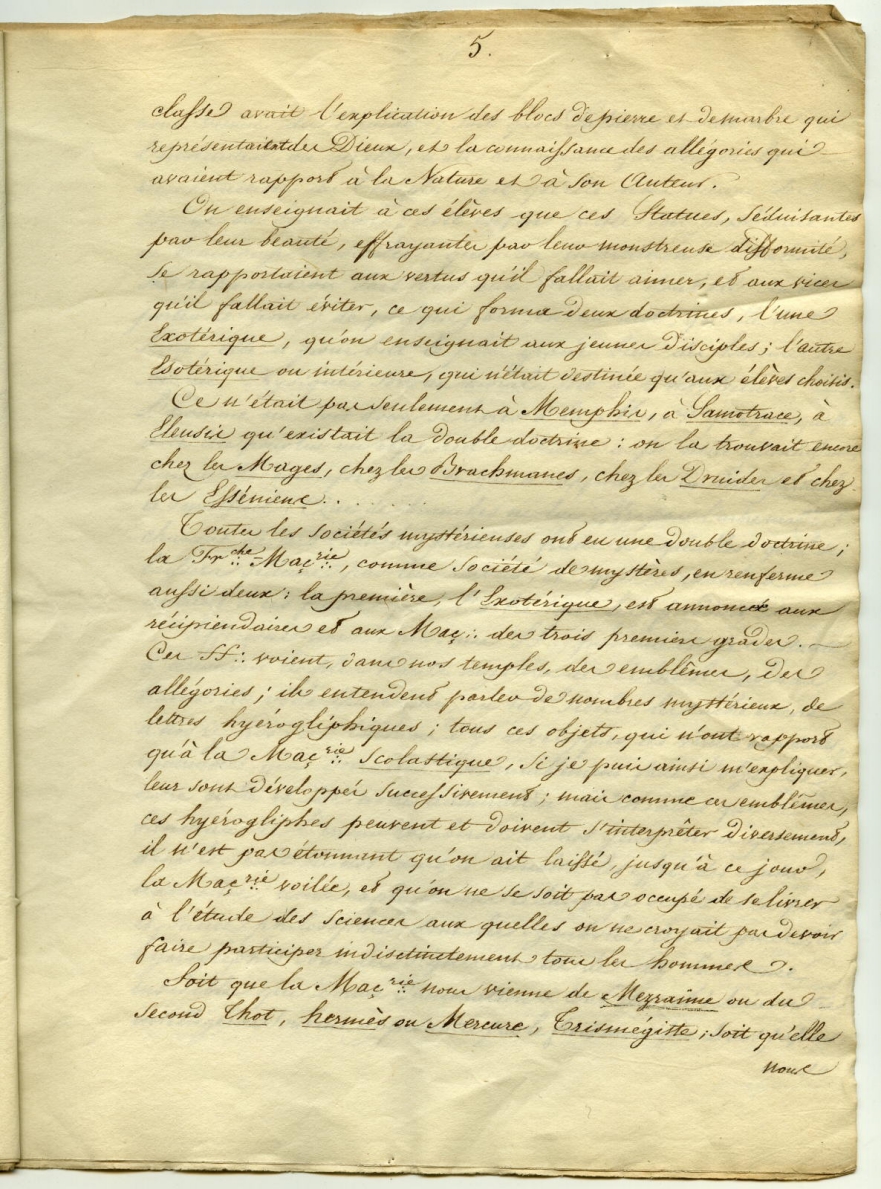 5.
classe avait l'explication des blocs de pierre et de marbre qui
représentaient des Dieux, et la connaissance des allégories qui
avaient rapport à la Nature et à son Auteur.
On enseignait à ces élèves que ces Statues, séduisantes
par leur beauté, effrayantes par leur monstreuse difformité,
se rapportaient aux vertus qu'il fallait aimer, et aux vices
qu'il fallait éviter, ce qui forma deux doctrines, l'une
Exotérique, qu'on enseignait aux jeunes disciples; l'autre
Esotérique ou intérieure, qui n'était destinée qu'aux élèves choisis.
Ce n'était pas seulement à Memphis, à Samotrace, à
Eleusis qu'existait la double doctrine: on la trouvait encore
chez les Mages, chez les Brachmanes, chez les Druides et chez
les Esséniens. . . . . . .
Toutes les sociétés mystérieuses ont eu une double doctrine;
la Fr^che∴-Maç^rie∴, comme Société de mystères, en renferme
aussi deux: la première, l'Exotérique, est annoncée aux
récipiendaires et aux Maç∴ des trois premiers grades.
Ces FF∴ voient, dans nos temples, des emblêmes, des
allégories; ils entendent parler de nombres mystérieux, de
lettres hyérogliphiques; tous ces objets, qui n'ont rapport
qu'à la Maç^rie∴ Scolastique, si je puis ainsi m'expliquer,
leur sont développés successivement; mais comme ces emblêmes,
ces hyérogliphes peuvent et doivent s'interprêter diversement,
il n'est pas étonnant qu'on ait laissé, jusqu'à ce jour,
la Maç^rie∴ voilée, et qu'on ne se soit pas occupé de se livrer
à l'étude des sciences aux quelles on ne croyait pas devoir
faire participer indisctinctement tous les hommes.
Soit que la Maç^rie∴ nous vienne de Mezraïme ou du
second Thot, hermès ou Mercure, Trismégitte; soit qu'elle
nous